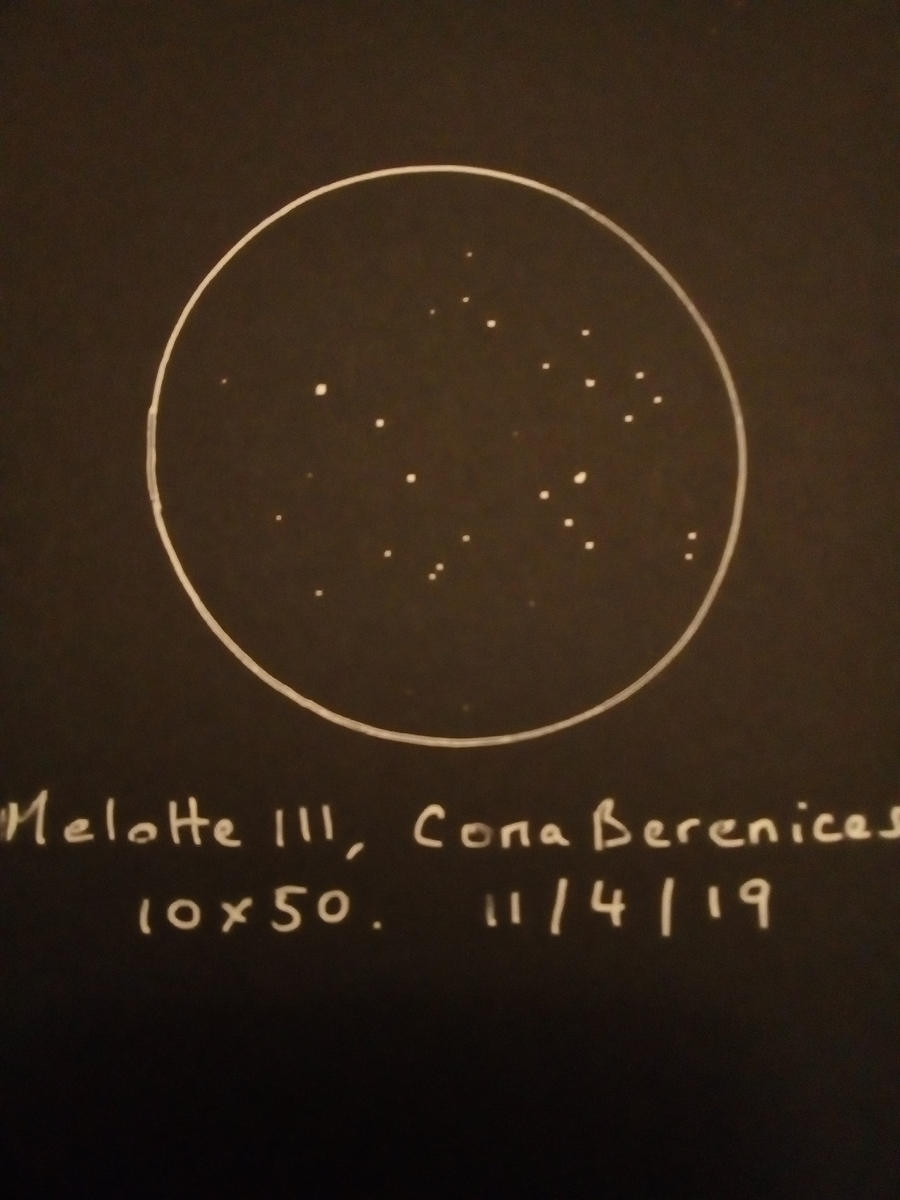 Melotte 111, Coma Berenices
10x50. 11/4/19